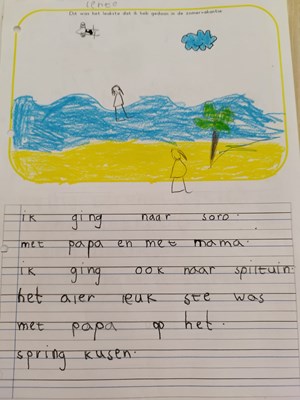 Dit was het leukste dat ik heb gedaan in de zomervakantie
ik ging naar soro.
met papa en met mama.
ik ging ook naar spiltuin.
het aler leuk ste was
met papa op het.
spring kusen.